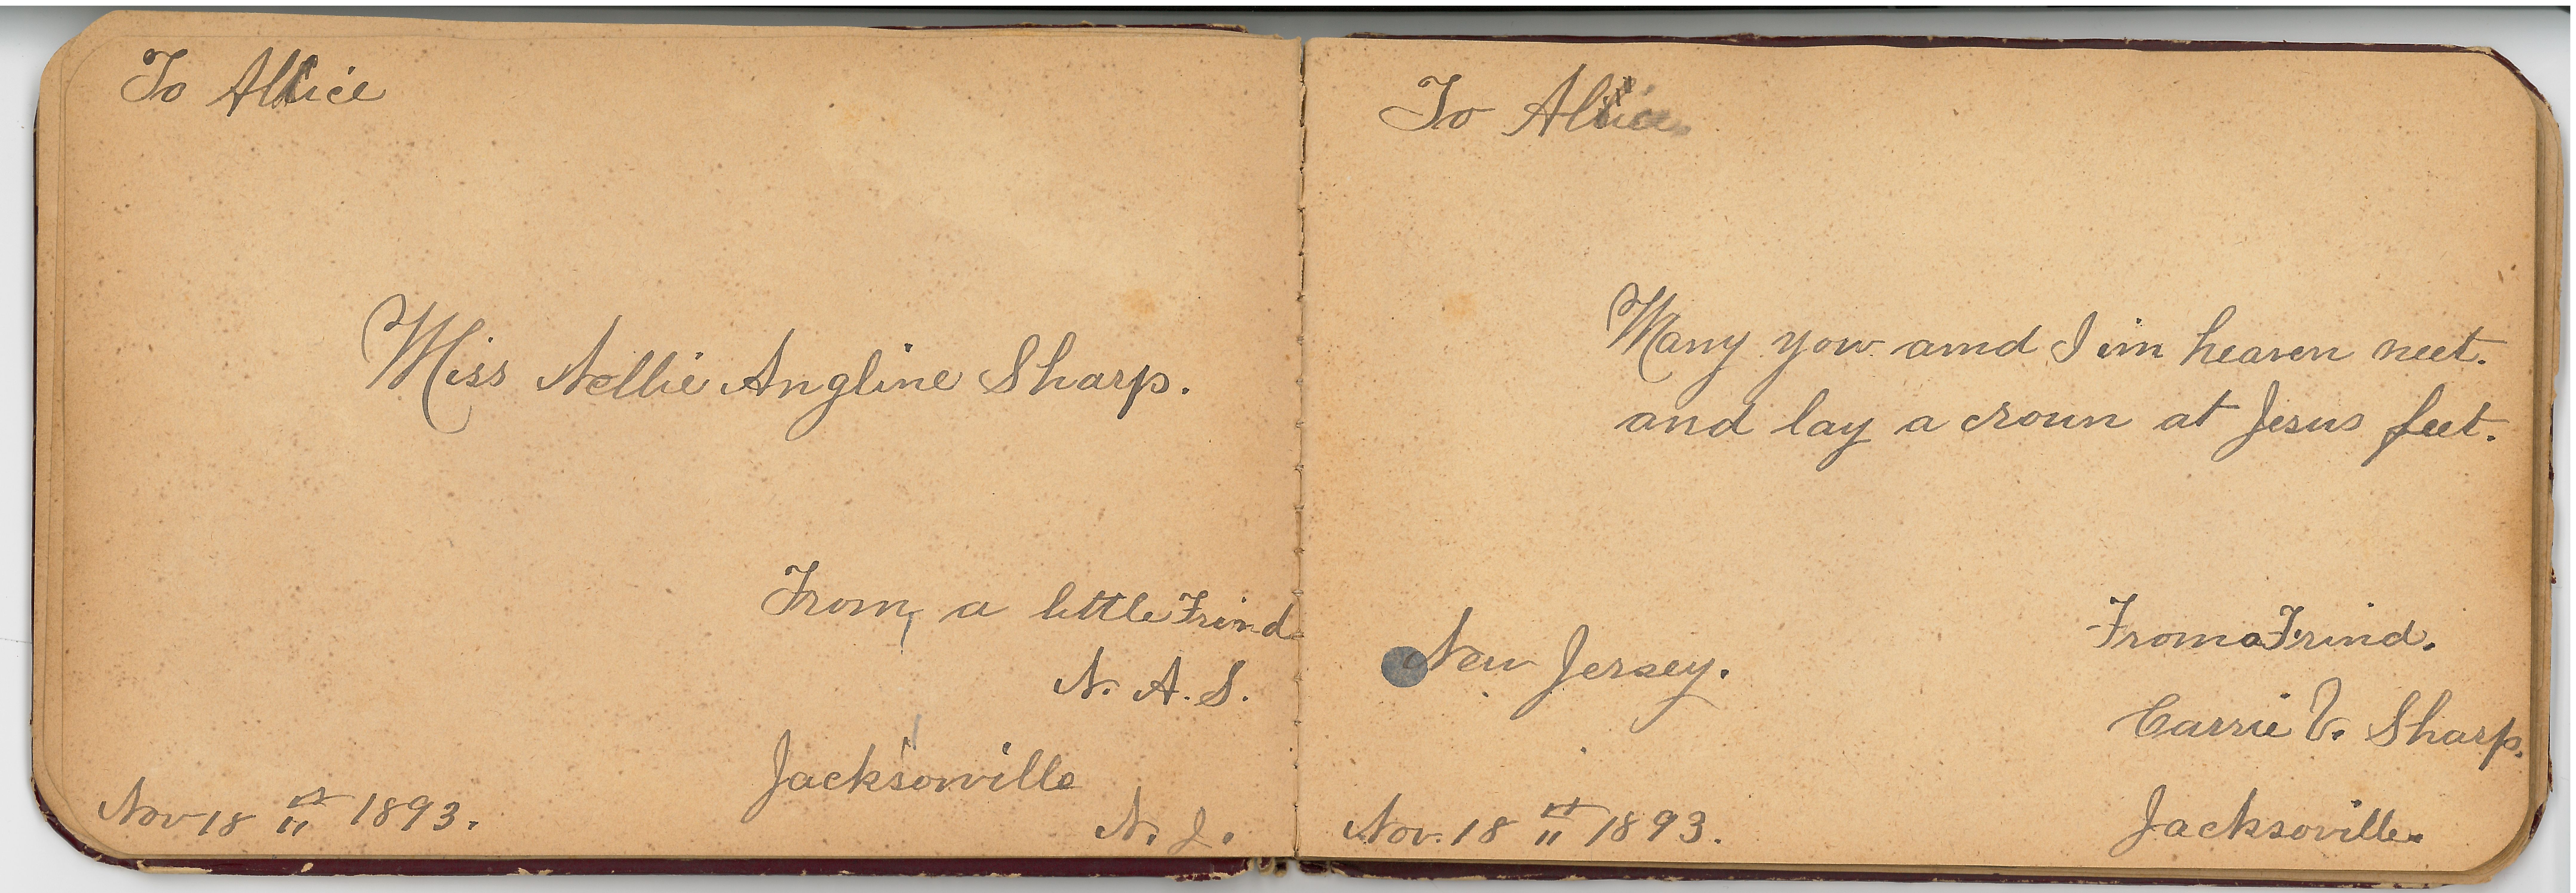 To Allice
Miss Nellie Angline Sharp.
From, a little Frind
N. A. S.
Jacksonville
Nov 18 st 1893.
N. J.
To Allice
Many yow amd I im heaven neet.
and lay a croun at Jesus feet.
From a Frind.
New Jersey.
Carrie V. Sharp.
Nov. 18 st 1893.
Jacksoville